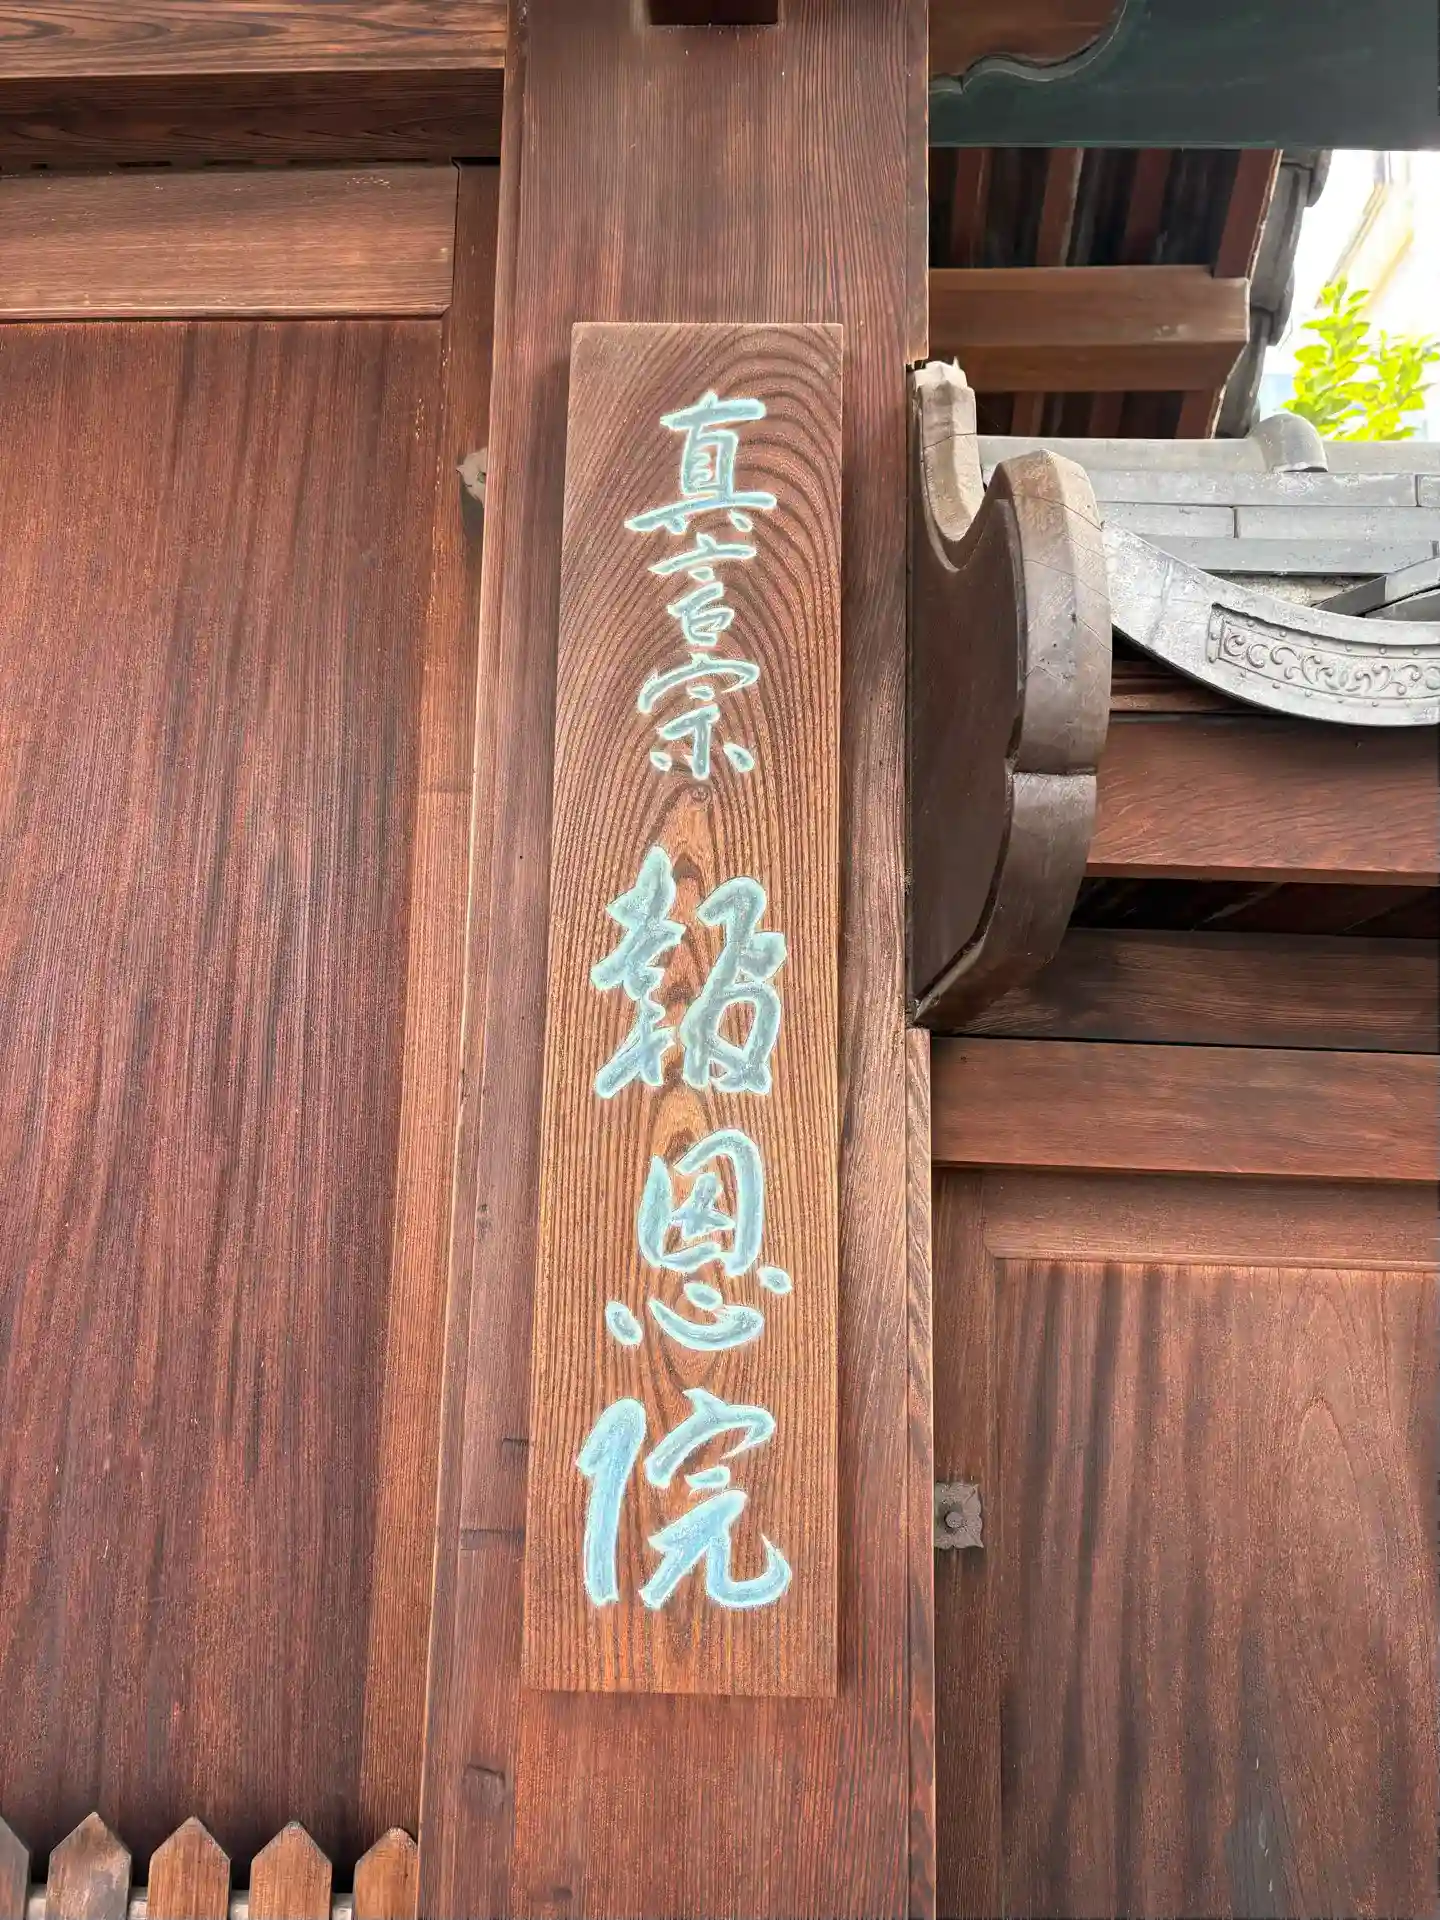 真言宗 報恩院